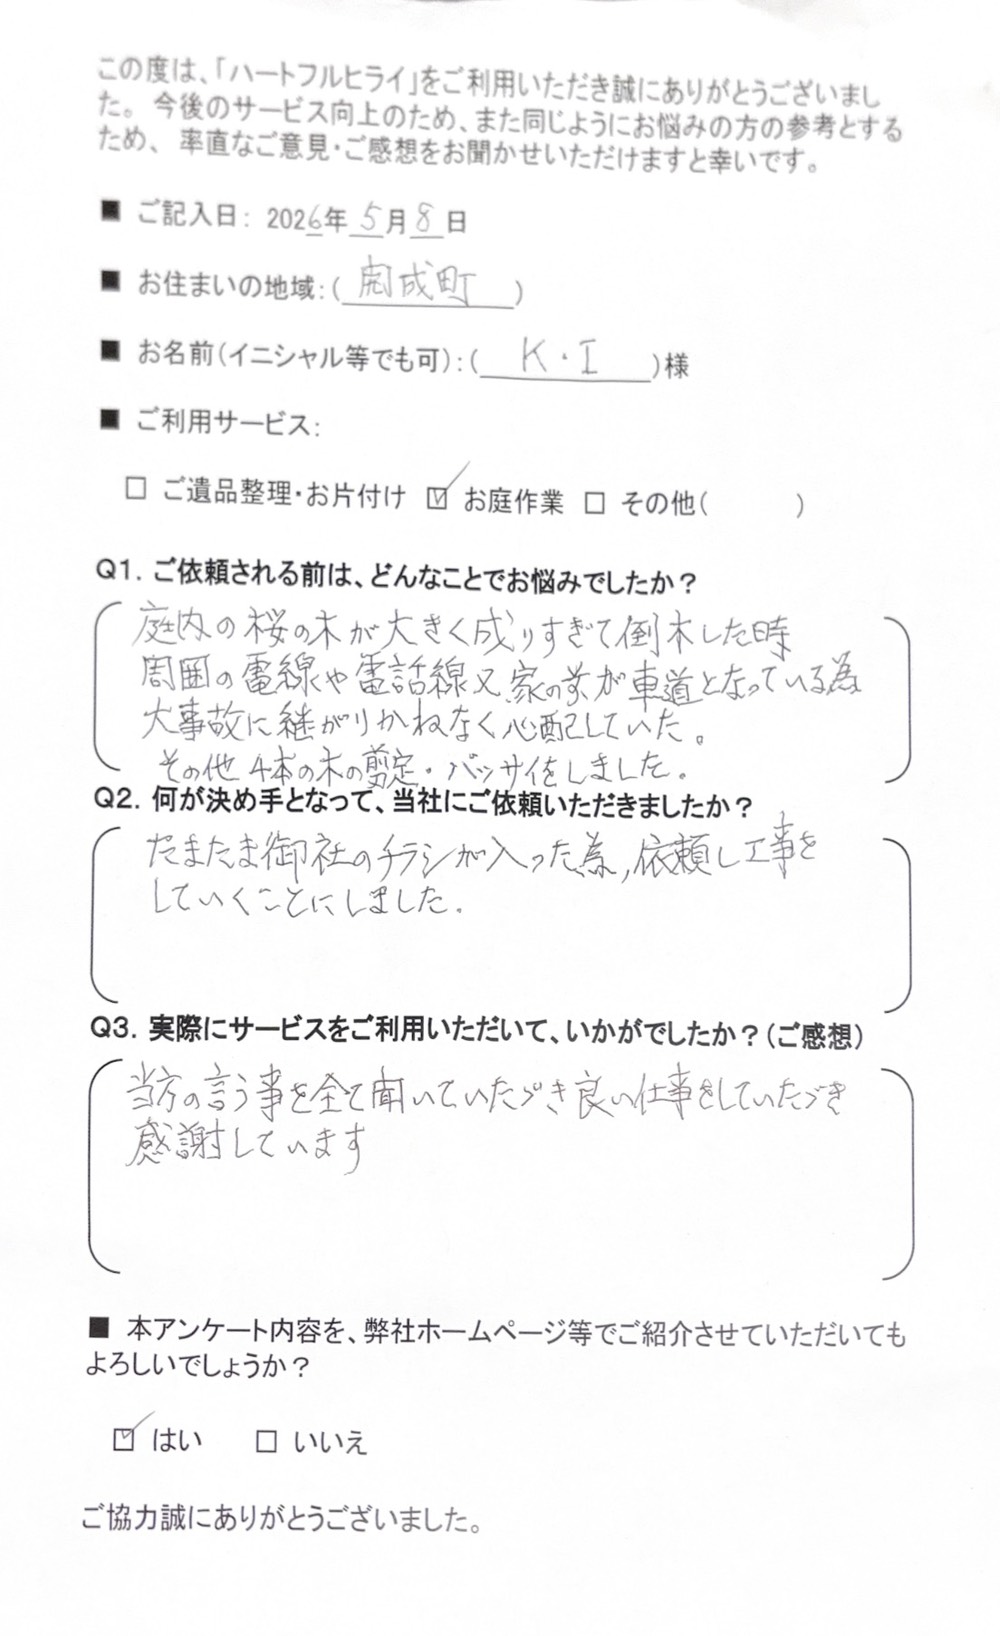 この度は、「ハートフルヒライ」をご利用いただき誠にありがとうございまし
た。今後のサービス向上のため、また同じようにお悩みの方の参考とする
ため、率直なご意見・ご感想をお聞かせいただけますと幸いです。
■ ご記入日: 2026年 5月 8日
■ お住まいの地域:( 開成町 )
■ お名前(イニシャル等でも可):( K・I )様
■ ご利用サービス:
□ ご遺品整理・お片付け ☑ お庭作業 □ その他( )
Q1. ご依頼される前は、どんなことでお悩みでしたか?
庭内の桜の木が大きく成りすぎて倒木した時
周囲の電線や電話線又家の前が車道となっている為
大事故に継がりかねなく心配していた。
その他4本の木の剪定・バッサイをしました。
Q2. 何が決め手となって、当社にご依頼いただきましたか?
たまたま御社のチラシが入った為,依頼し工事を
していくことにしました.
Q3. 実際にサービスをご利用いただいて、いかがでしたか?(ご感想)
当方の言う事を全て聞いていたづき良い仕事をしていたづき
感謝しています
■ 本アンケート内容を、弊社ホームページ等でご紹介させていただいても
よろしいでしょうか?
☑ はい □ いいえ
ご協力誠にありがとうございました。